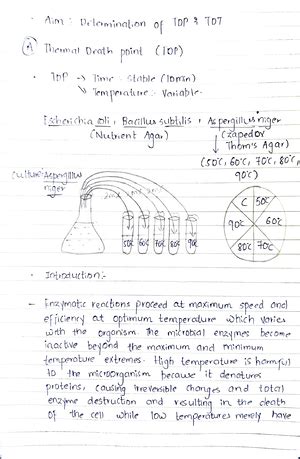 Aim : Determination of TDP & TDT
A Thermal Death point (TDP)
TDP → Time - Stable (10min)
Temperature - Variable.
Escherichia coli, Bacillus subtilis, Aspergillus niger
(Nutrient Agar)
Thom's Agar)
(50℃, 60℃, 70℃, 80℃,
90℃)
Culture: Aspergillus
niger
50℃ 60℃ 70℃ 80℃ 90℃
C 50℃
90℃ 60℃
80℃ 70℃
Introduction:-
Enzymatic reactions proceed at maximum speed and
efficiency at optimum temperature which varies
with the organism. The microbial enzymes become
inactive beyond the maximum and minimum
temperature extremes. High temperature is harmful
to the microorganism because it denatures
proteins, causing irreversible changes and total
enzyme destruction and resulting in the death
of the cell while low temperatures merely have